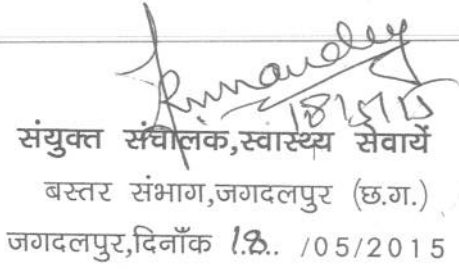 18/5/15
संयुक्त संचालक,स्वास्थ्य सेवायें
बस्तर संभाग,जगदलपुर (छ.ग.)
जगदलपुर,दिनाँक 18.. /05/2015